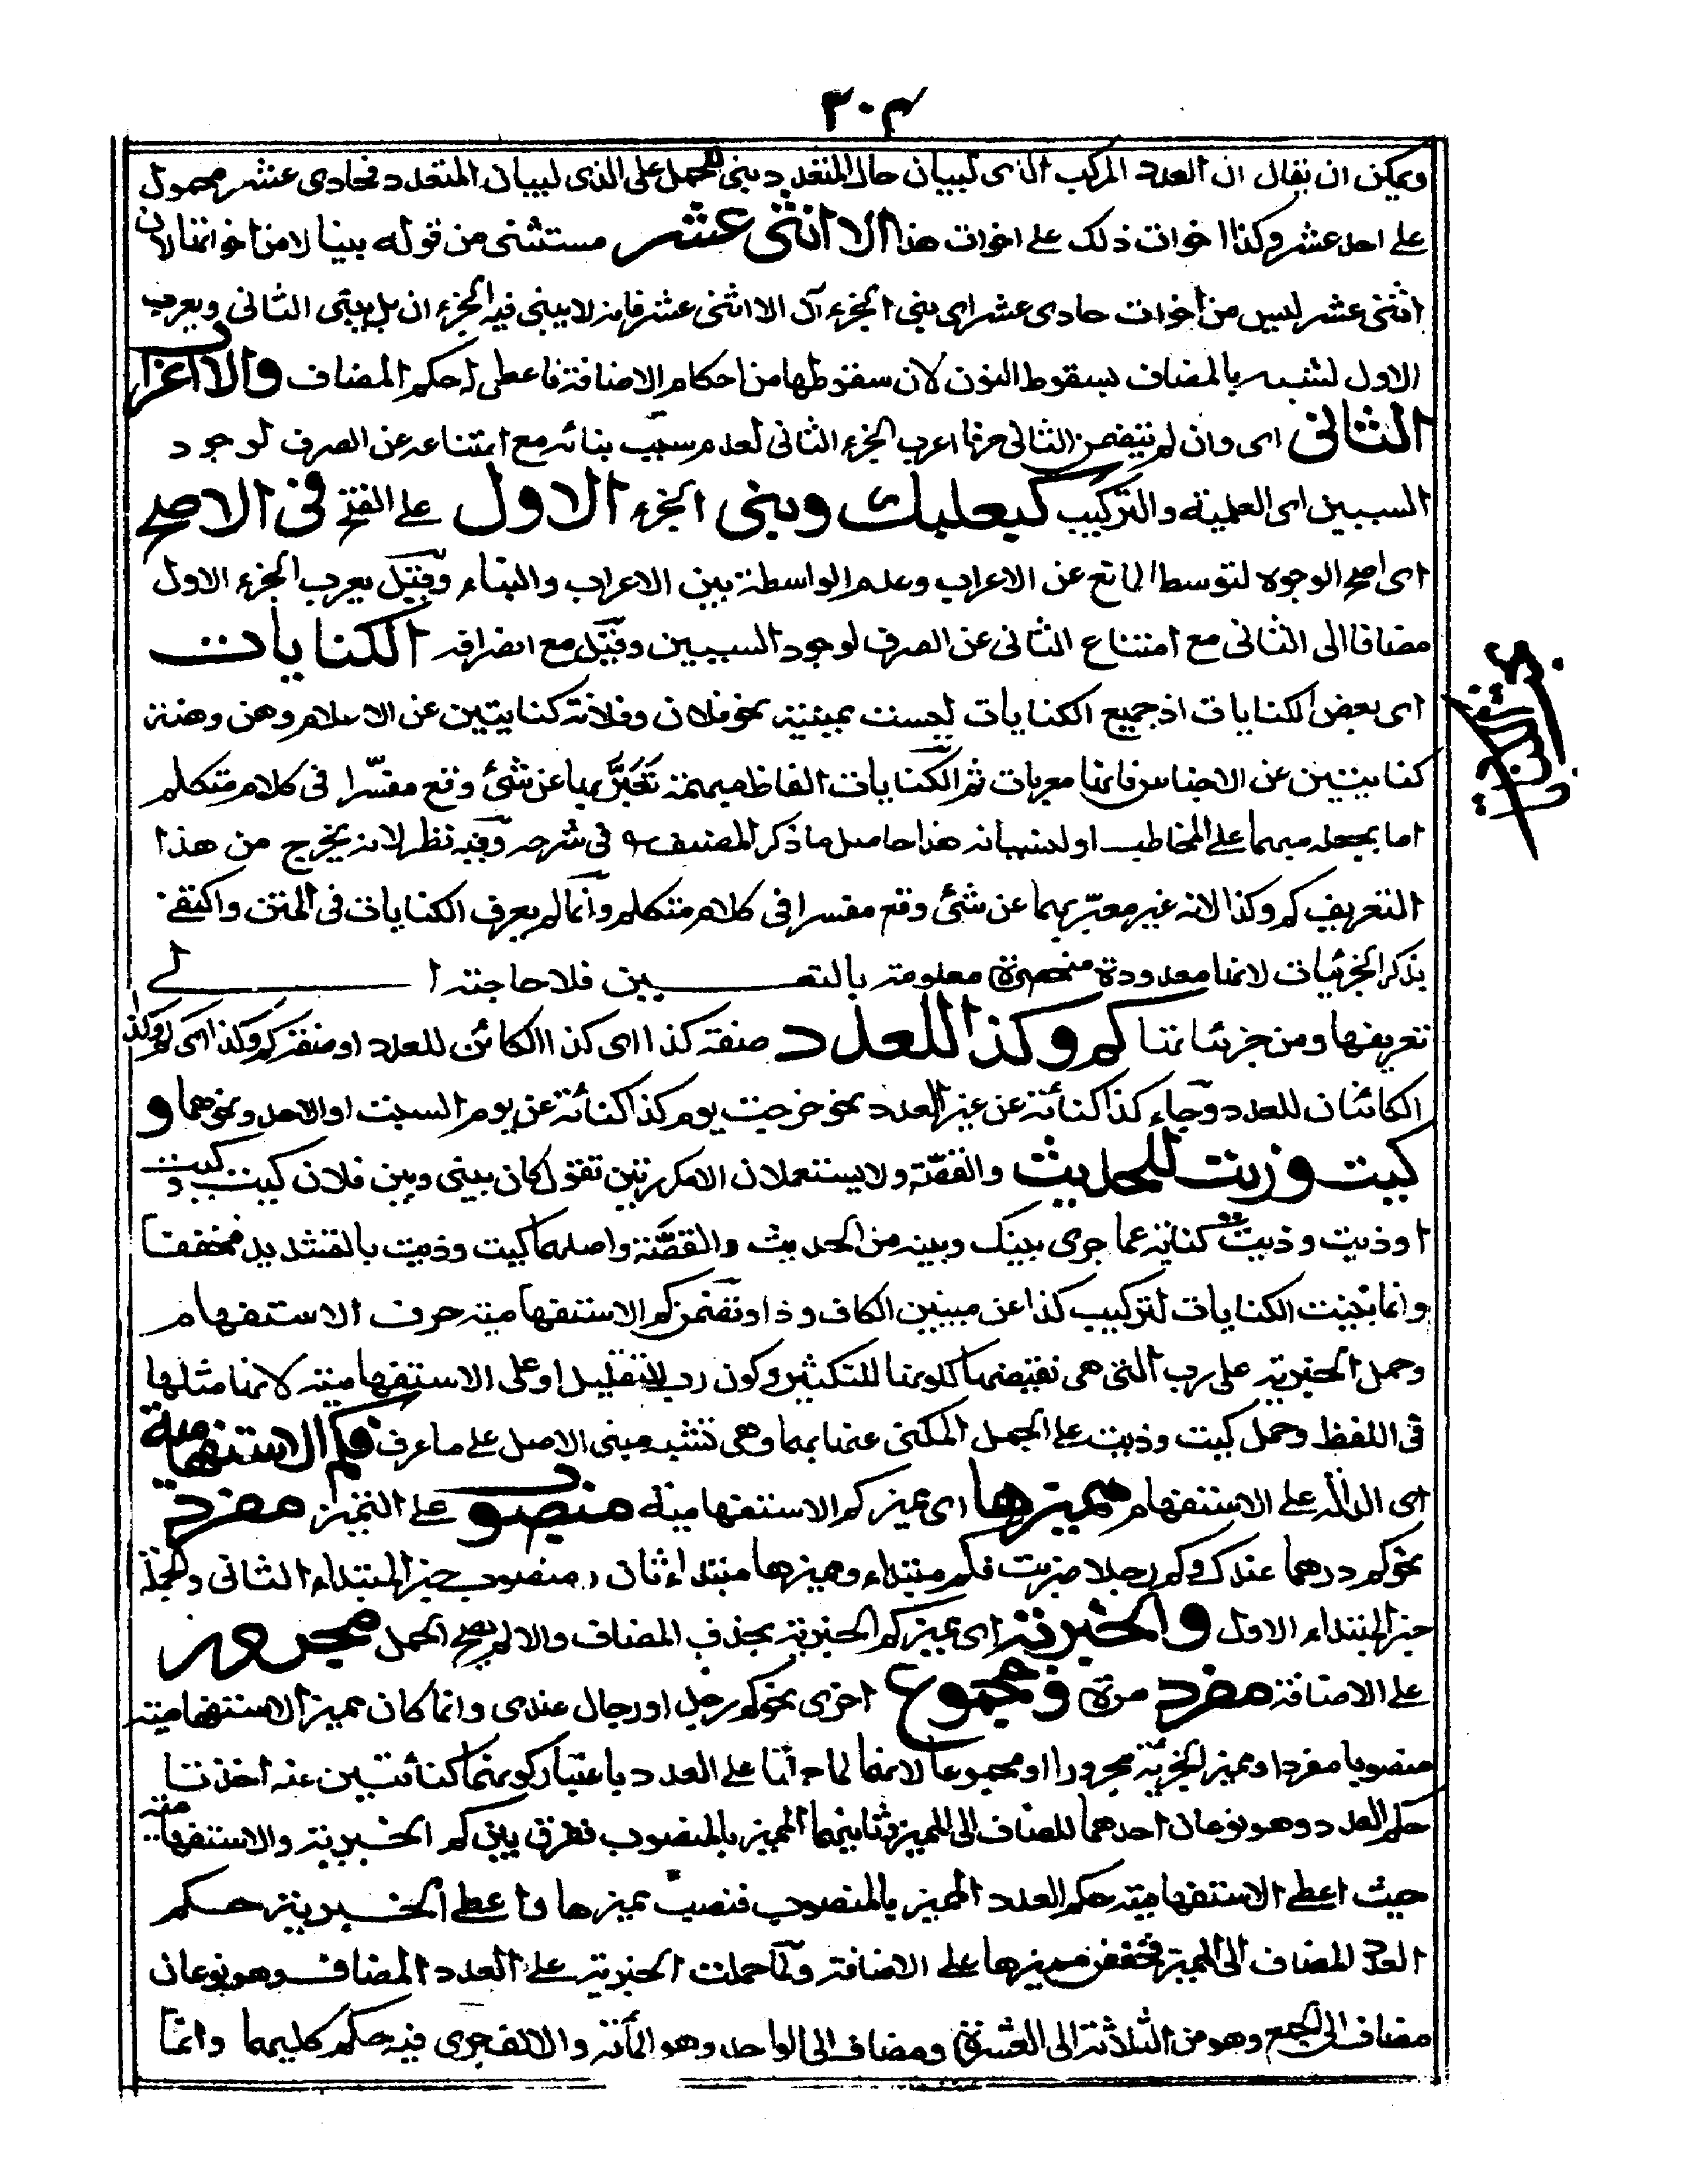 ٣٠٣
ويمكن ان يقال ان العدد المركب الذى لبيان حال المتعدد بنى للحمل على الذى لبيان المتعدد فحادى عشر محمول
على احد عشر وكذا اخوات ذلك على اخوات هذا الا اثنى عشر مستثنى من قوله بنيا لا من اخواتها لان
اثنى عشر ليس من اخوات حادى عشر اى بنى الجزء ان الا اثنى عشر فانه لا يبنى فيه الجزء ان بل يبنى الثانى ويعرب
الاول لشبهه بالمضاف بسقوط النون لان سقوطها من احكام الاضافة فاعطى له حكم المضاف والا اعرب
الثانى اى وان لم يتضمن الثانى حرفا اعرب الجزء الثانى لعدم سبب بنائه مع امتناعه عن الصرف لوجود
السببين اى العلمية والتركيب كبعلبك وبنى الجزء الاول على الفتح فى الاصح
اى اصح الوجوه لتوسط المانع عن الاعراب وعدم الواسطة بين الاعراب والبناء وقيل يعرب الجزء الاول
مضافا الى الثانى مع امتناع الثانى عن الصرف لوجود السببين وقيل مع انصرافه الكنايات
اى بعض الكنايات اذ جميع الكنايات ليست بمبنية نحو فلان وفلانة كنايتين عن الاعلام وهن وهنة
كنايتين عن الاجناس فانها معربات ثم الكنايات الفاظ مبهمة تعبر بها عن شئ وقع مفسرا فى كلام متكلم
اما بجعله مبهما على المخاطب او لنسيانه هذا حاصل ما ذكر المصنف فى شرحه وفيه نظر لانه يخرج من هذا
التعريف كم وكذا لانه غير معبر بهما عن شئ وقع مفسرا فى كلام متكلم وانما لم يعرف الكنايات فى المتن واكتفى
بذكر الجزئيات لانها معدودة منحصرة معلومة بالتعيين فلا حاجة الى
تعريفها ومن جزئياتها كم وكذا للعدد صفة كذا اى كذا الكائن للعدد او صفة كم وكذا اى كم وكذا
الكائنان للعدد وجاء كذا كناية عن غير العدد نحو خرجت يوم كذا كناية عن يوم السبت او الاحد ونحوهما و
كيت وزيت للحديث والقصة ولا يستعملان الا مكررتين تقول كان بينى وبين فلان كيت وكيت
او ذيت وذيت كناية عما جرى بينك وبينه من الحديث والقصة واصلهما كيت وذيت بالتشديد فخففتا
وانما بنيت الكنايات لتركيب كذا عن مبنيين الكاف وذا وتضمن كم الاستفهامية حرف الاستفهام
وحمل الخبرية على رب التى هى نقيضها لكونها للتكثير وكون رب للتقليل او على الاستفهامية لانها مثلها
فى اللفظ وحمل كيت وذيت على الجمل المكنى عنها بهما وهى تشبه مبنى الاصل على ما عرف فكم الاستفهامية
اى الدالة على الاستفهام مميزها اى مميز كم الاستفهامية منصوب على التمييز مفرد
نحو كم درهما عندك وكم رجلا ضربت فكم مبتداء ومميزها مبتداء ثان ومنصوب خبر المبتداء الثانى والجملة
خبر المبتداء الاول والخبرية اى مميز كم الخبرية بحذف المضاف والا لم يصح الحمل مجرور
على الاضافة مفرد مرة ومجموع اخرى نحو كم رجل او رجال عندى وانما كان مميز الاستفهامية
منصوبا مفردا ومميز الخبرية مجرورا او مجموعا لانهما لما دلتا على العدد باعتبار كونهما كنايتين عنه اخذتا
حكم العدد وهو نوعان احدهما المضاف الى المميز وثانيهما المميز بالمنصوب ففرق بين كم الخبرية والاستفهامية
حيث اعطى الاستفهامية حكم العدد المميز بالمنصوب فنصب مميزها واعطى الخبرية حكم
العدد المضاف الى المميز فخفض مميزها على الاضافة ولما حملت الخبرية على العدد المضاف وهو نوعان
مضاف الى الجمع وهو من الثلاثة الى العشرة ومضاف الى الواحد وهو المائة والالف جرى فيه حكم كليهما وانما
بحث الكنايات